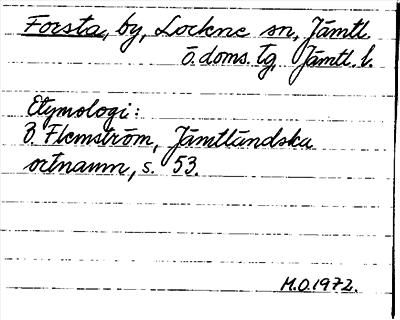 Forsta, by, Lockne sn, Jämtl.
ö. doms. tg, Jämtl. l.
Etymologi:
B. Flemström, Jämtländska
ortnamn, s. 53.
M.O. 1972.